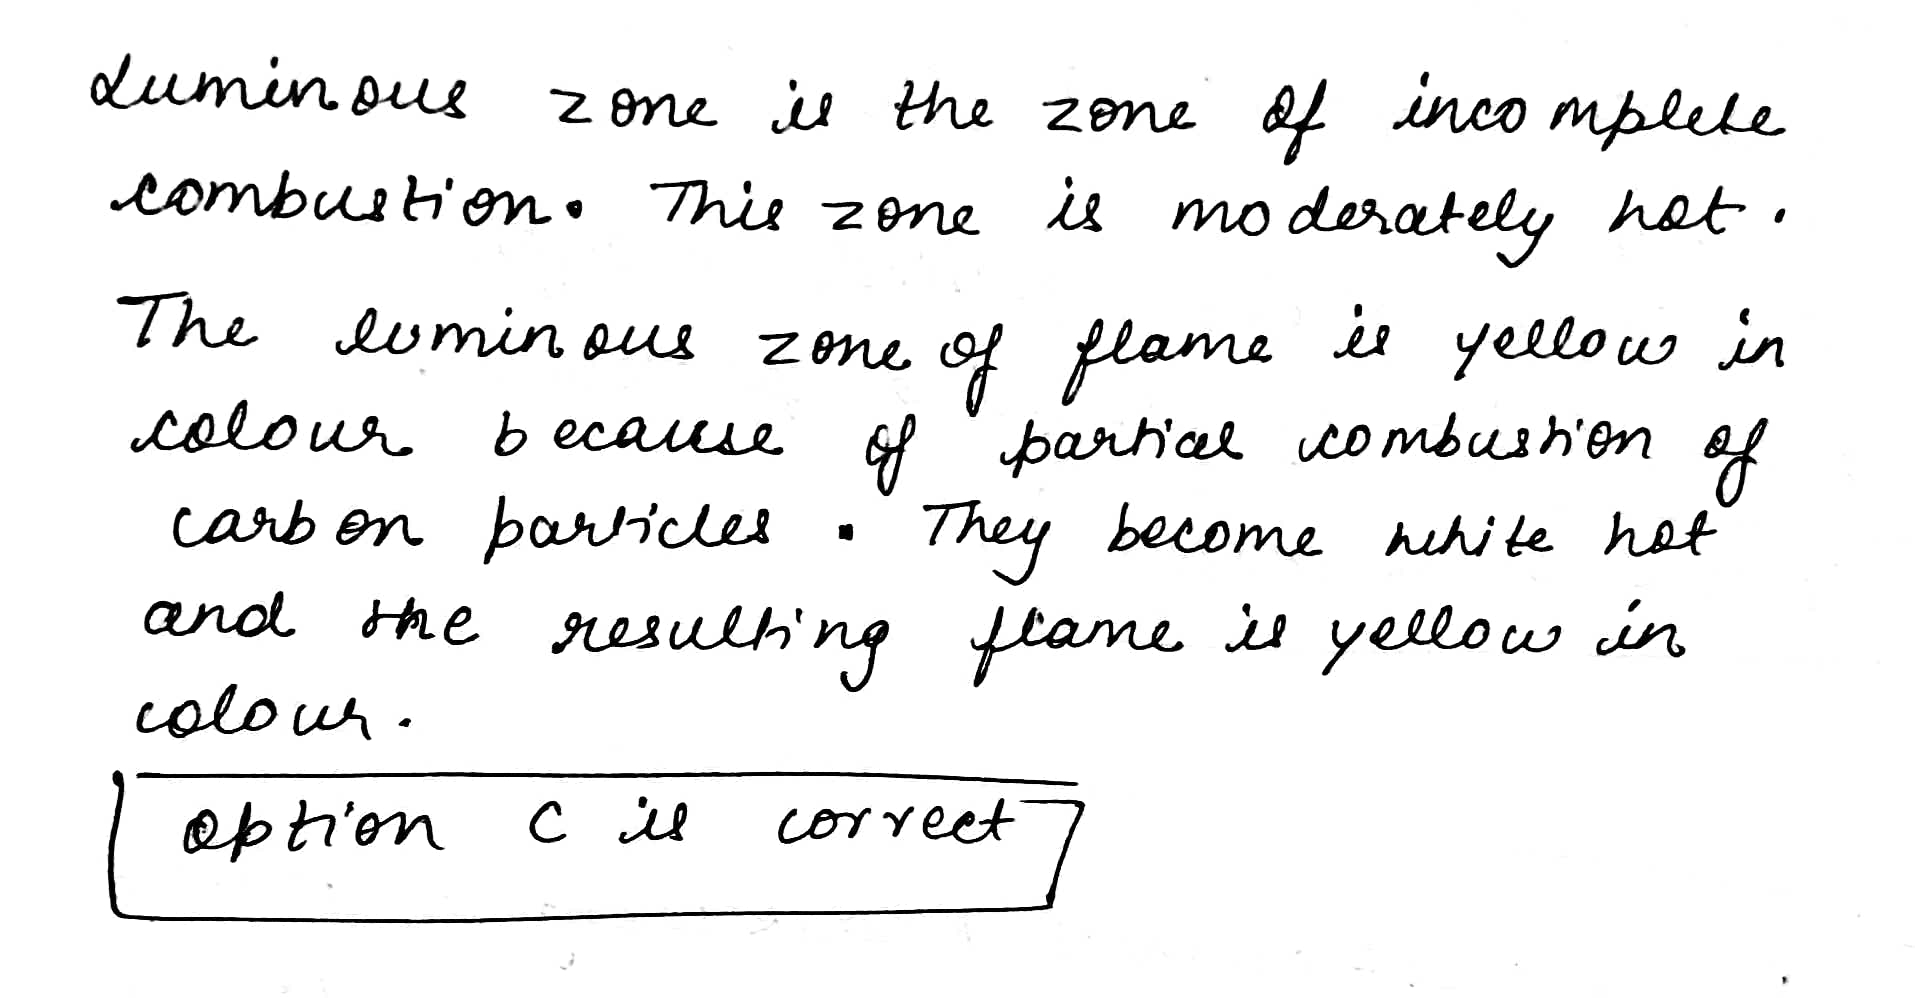 Luminous zone is the zone of incomplete
combustion. This zone is moderately hot.
The luminous zone of flame is yellow in
colour because of partical combustion of
carbon particles. They become white hot
and the resulting flame is yellow in
colour.
option C is correct